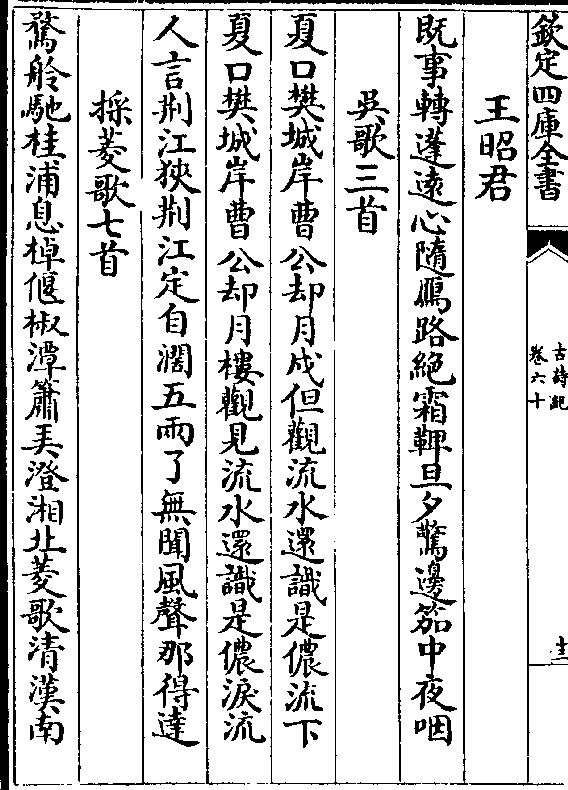 欽定四庫全書
古詩紀
卷六十
王昭君
既事轉蓬遠心隨鴈路絕霜鞞旦夕驚邊笳中夜咽
吳歌三首
夏口樊城岸曹公却月戍但觀流水還識是儂流下
夏口樊城岸曹公却月樓觀見流水還識是儂淚流
人言荆江狹荆江定自濶五兩了無聞風聲那得達
採菱歌七首
騖舲馳桂浦息棹偃椒潭簫弄澄湘北菱歌清漢南